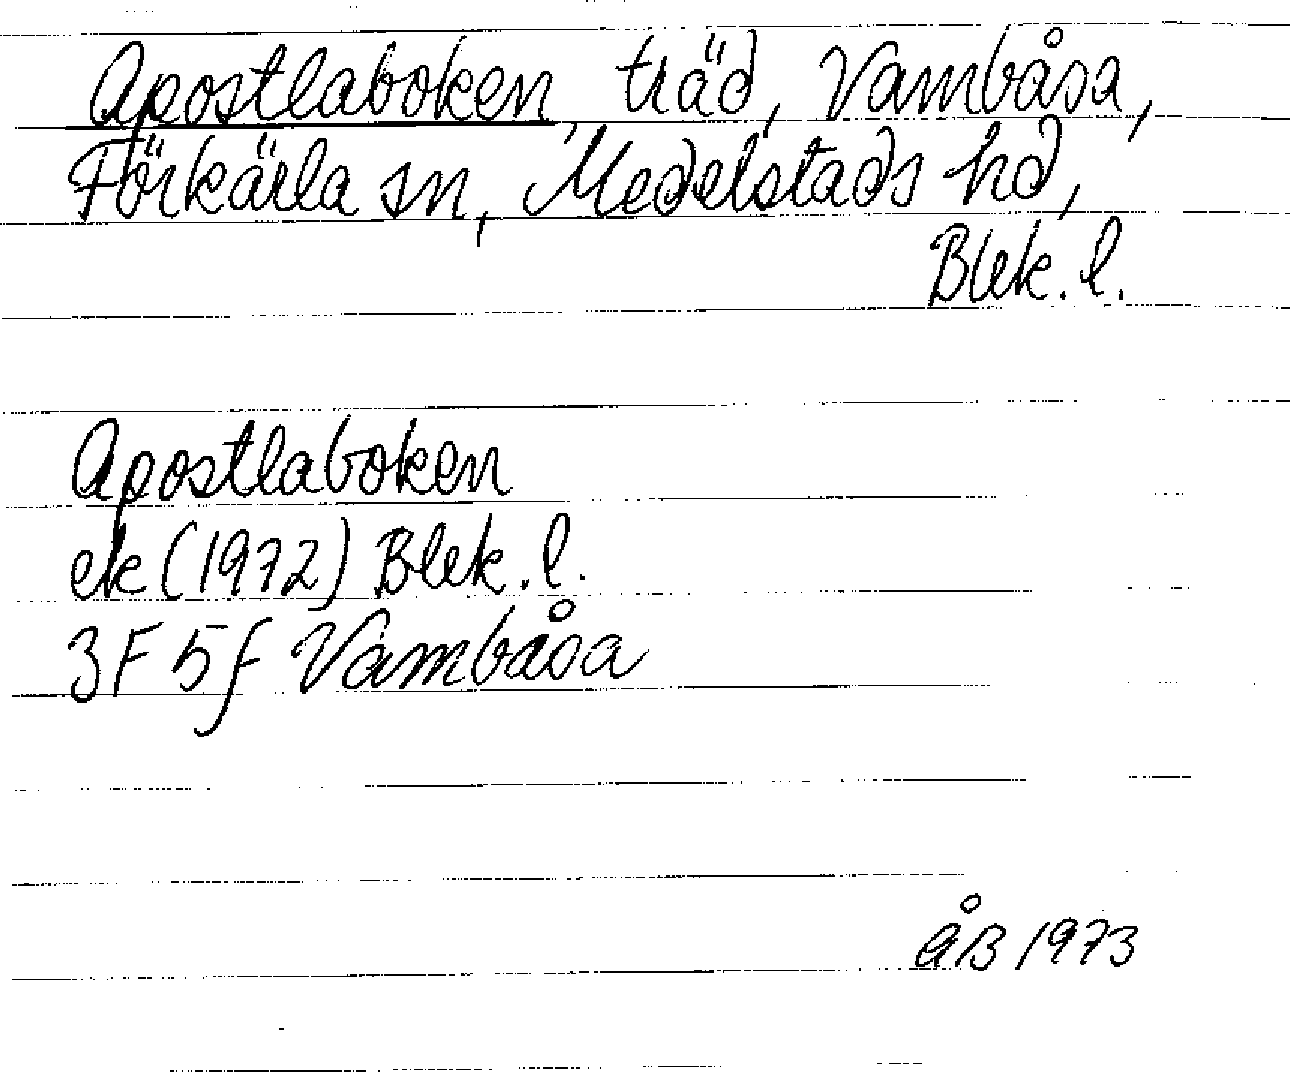 Apostlaboken, träd, Vambåsa,
Förkärla sn, Medelstads hd,
Blek. l.
Apostlaboken
ek (1972) Blek. l.
3F 5f Vambåsa
ÅB 1973